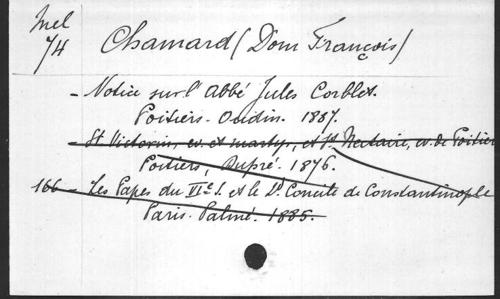 Mel
74
Chamard (Dom François)
- Notice sur l'Abbé Jules Corblet.
Poitiers. Oudin. 1887.
- St Victorin, ev. et martyr, et St Nectaire, ev. de Poitiers
Poitiers, Dupré. 1876.
166 - Les Papes du VIe S. et le 2d Concile de Constantinople
Paris. Palmé. 1885.